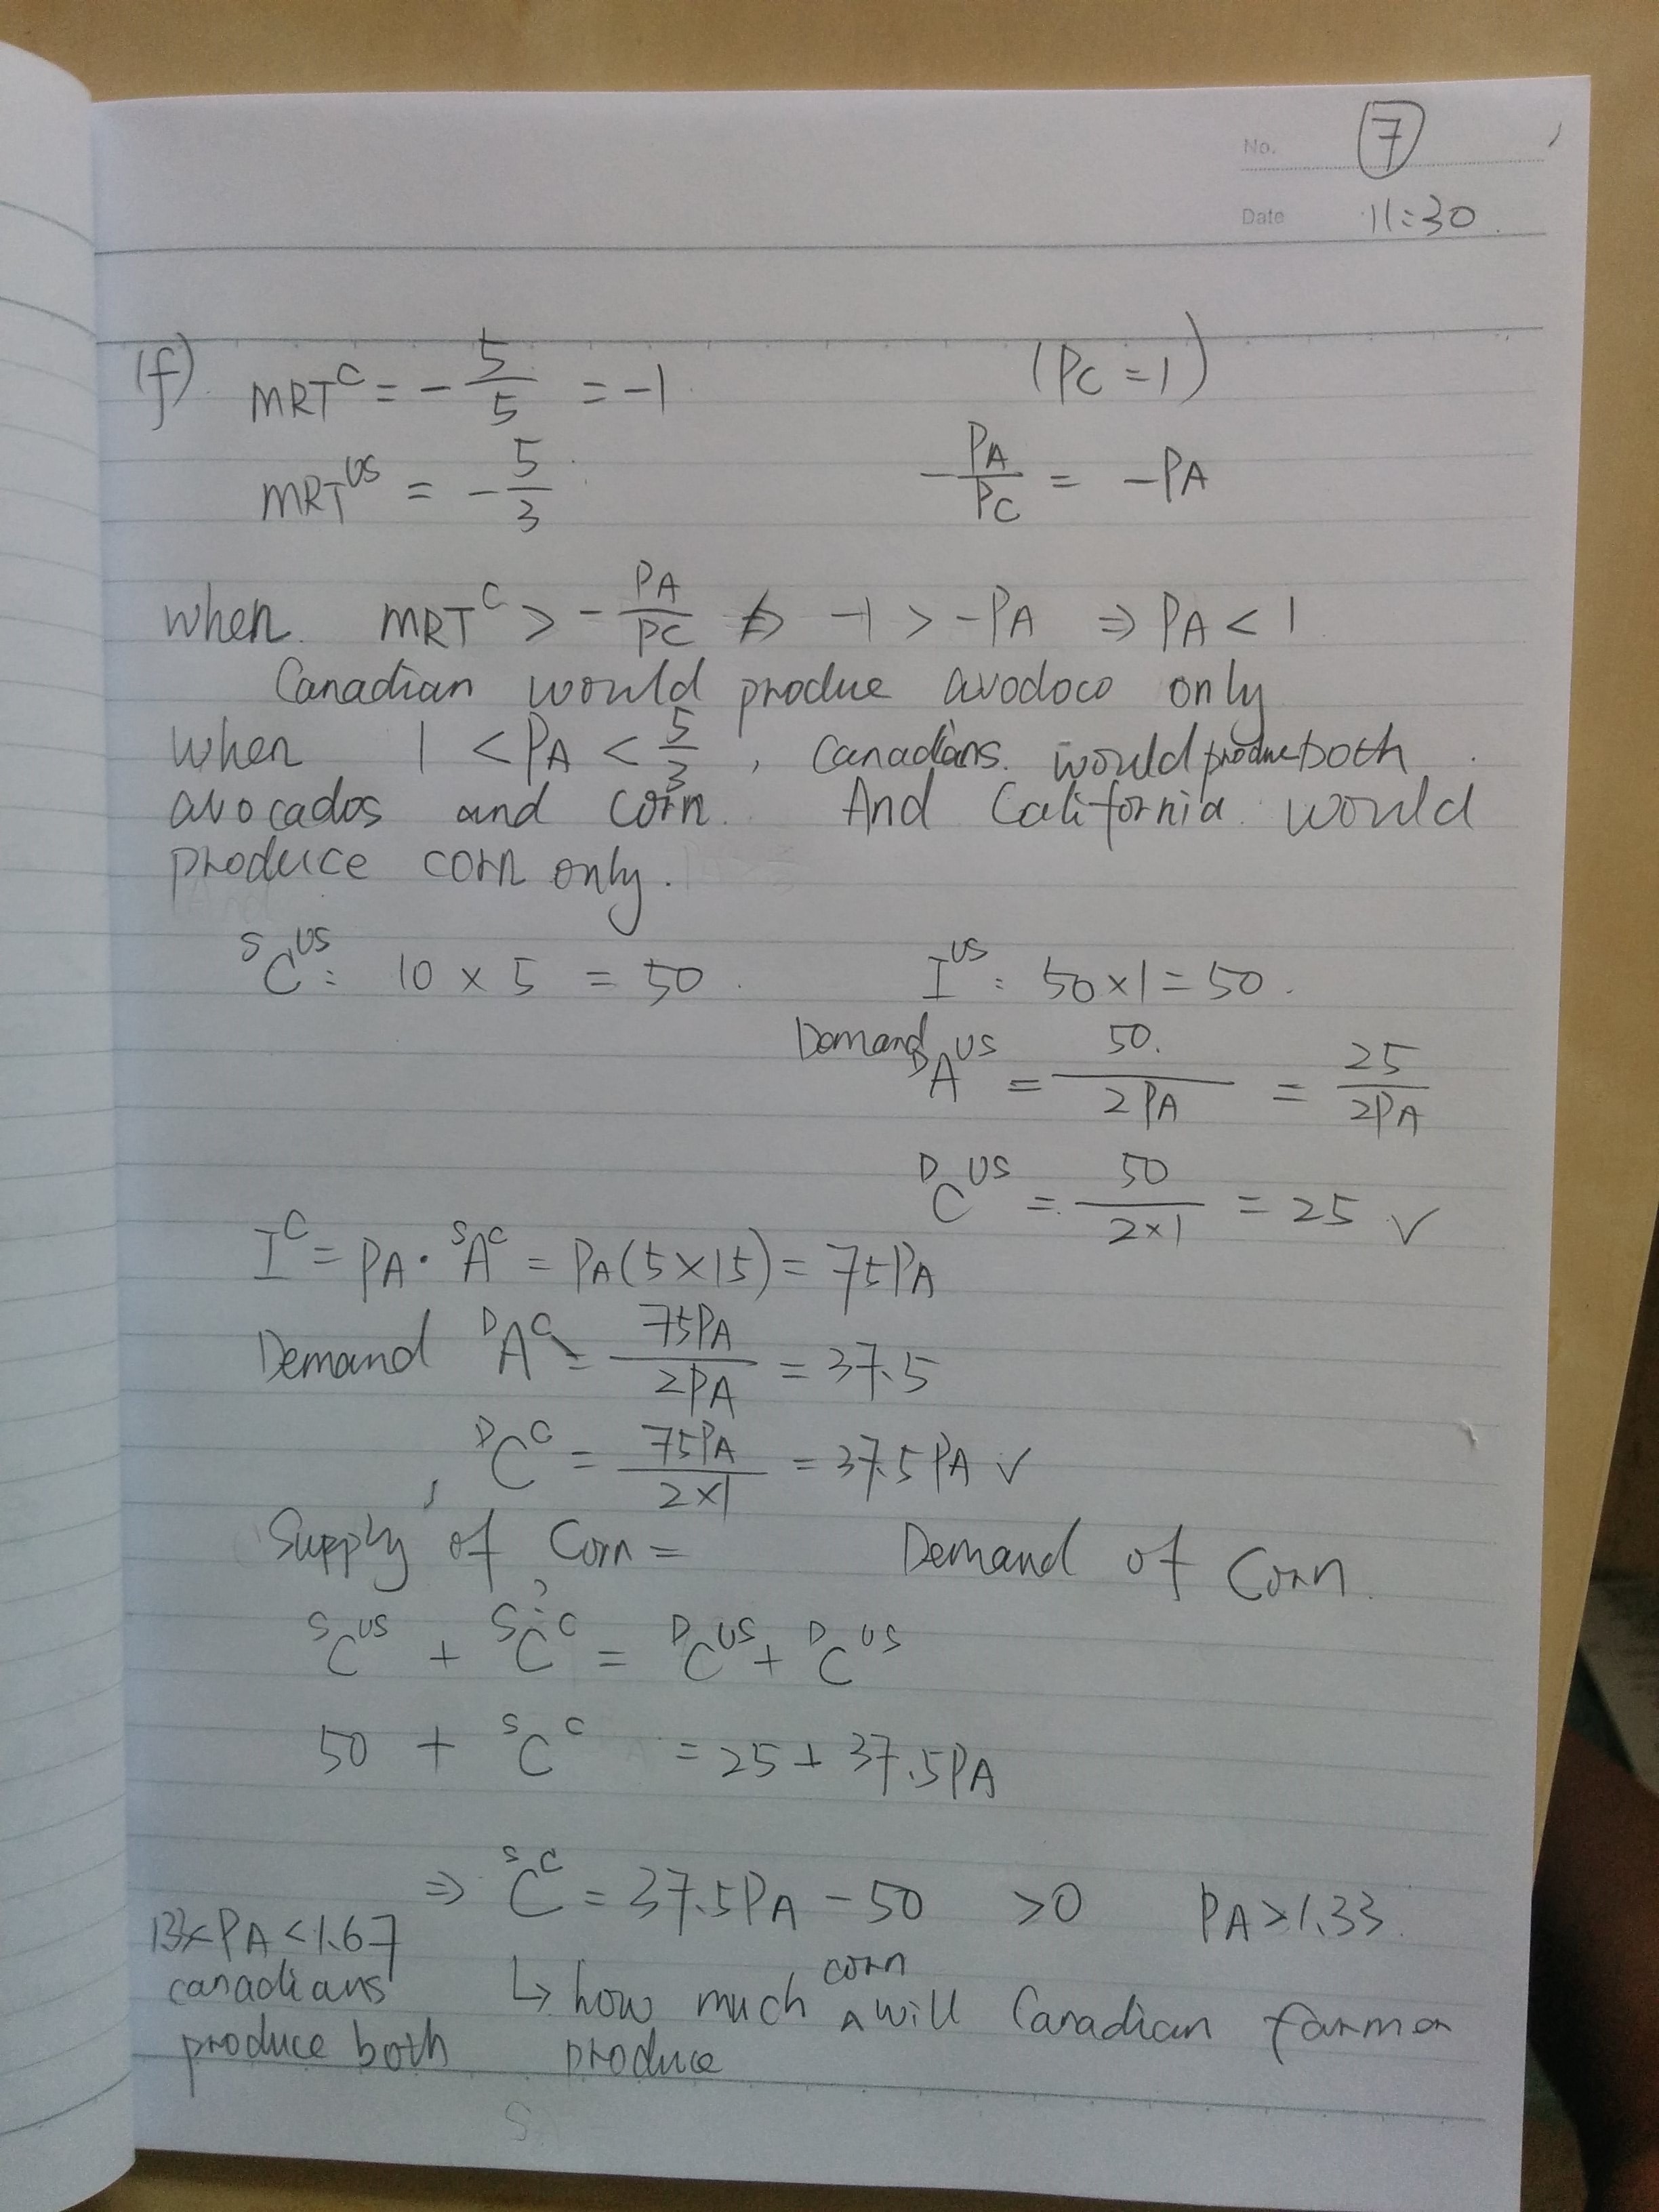 No. 7
Date 11:30
(f) MRT^C = -5/5 = -1 (PC = 1)
MRT^US = -5/3 -PA/PC = -PA
when MRT^C > -PA/PC ⇔ -1 > -PA ⇒ PA < 1
Canadian would produe avodoco only
when 1 < PA < 5/3, canadians. would produce both
avocados and corn. And California would
produce corn only.
^S C^US: 10 × 5 = 50 I^US: 50×1 = 50.
Demand ^D A^US = 50./2PA = 25/2PA
^D C^US = 50/2×1 = 25 ✓
I^C = PA · ^S A^C = PA(5×15) = 75PA
Demand ^D A^C = 75PA/2PA = 37.5
^D C^C = 75PA/2×1 = 37.5PA ✓
Supply of Corn = Demand of Corn.
^S C^US + ^S C^C = ^D C^US + ^D C^US
50 + ^S C^C = 25 + 37.5PA
⇒ ^S C^C = 37.5PA - 50 > 0 PA > 1.33.
1.33 < PA < 1.67
canadians
produce both
↳ how much corn will Canadian farmer
produce